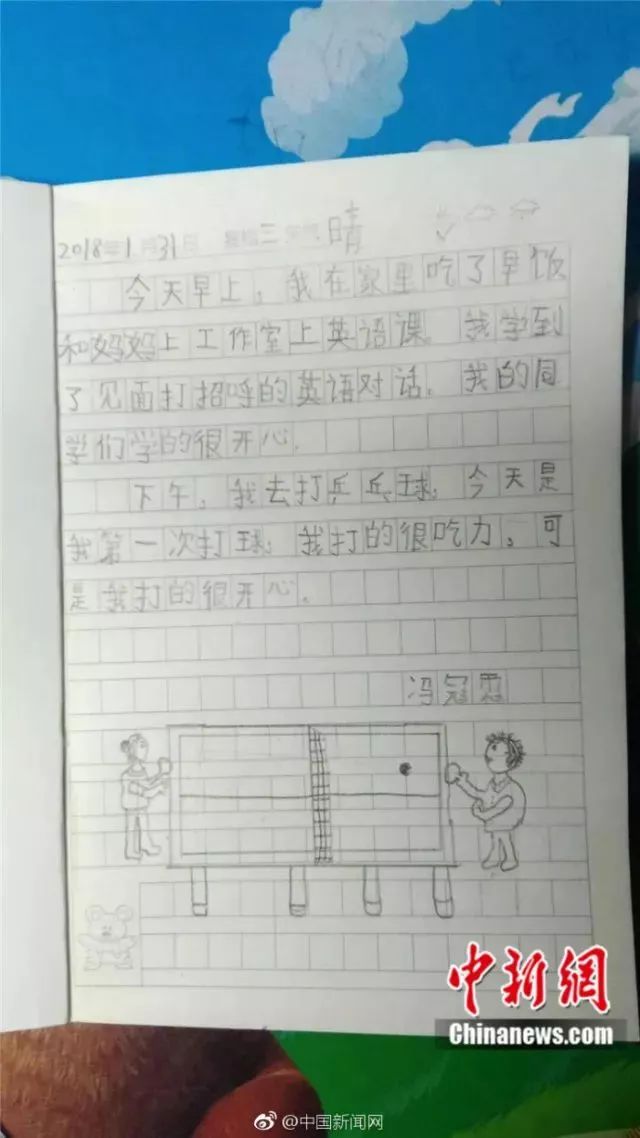 2018年1月31日 星期三 天气 晴
今天早上，我在家里吃了早饭
和妈妈上工作室上英语课。我学到
了见面打招呼的英语对话。我的同
学们学的很开心。
下午，我去打乒乓球，今天是
我第一次打球，我打的很吃力，可
是我打的很开心。
冯冠霖
中新網
Chinanews.com
@中国新闻网